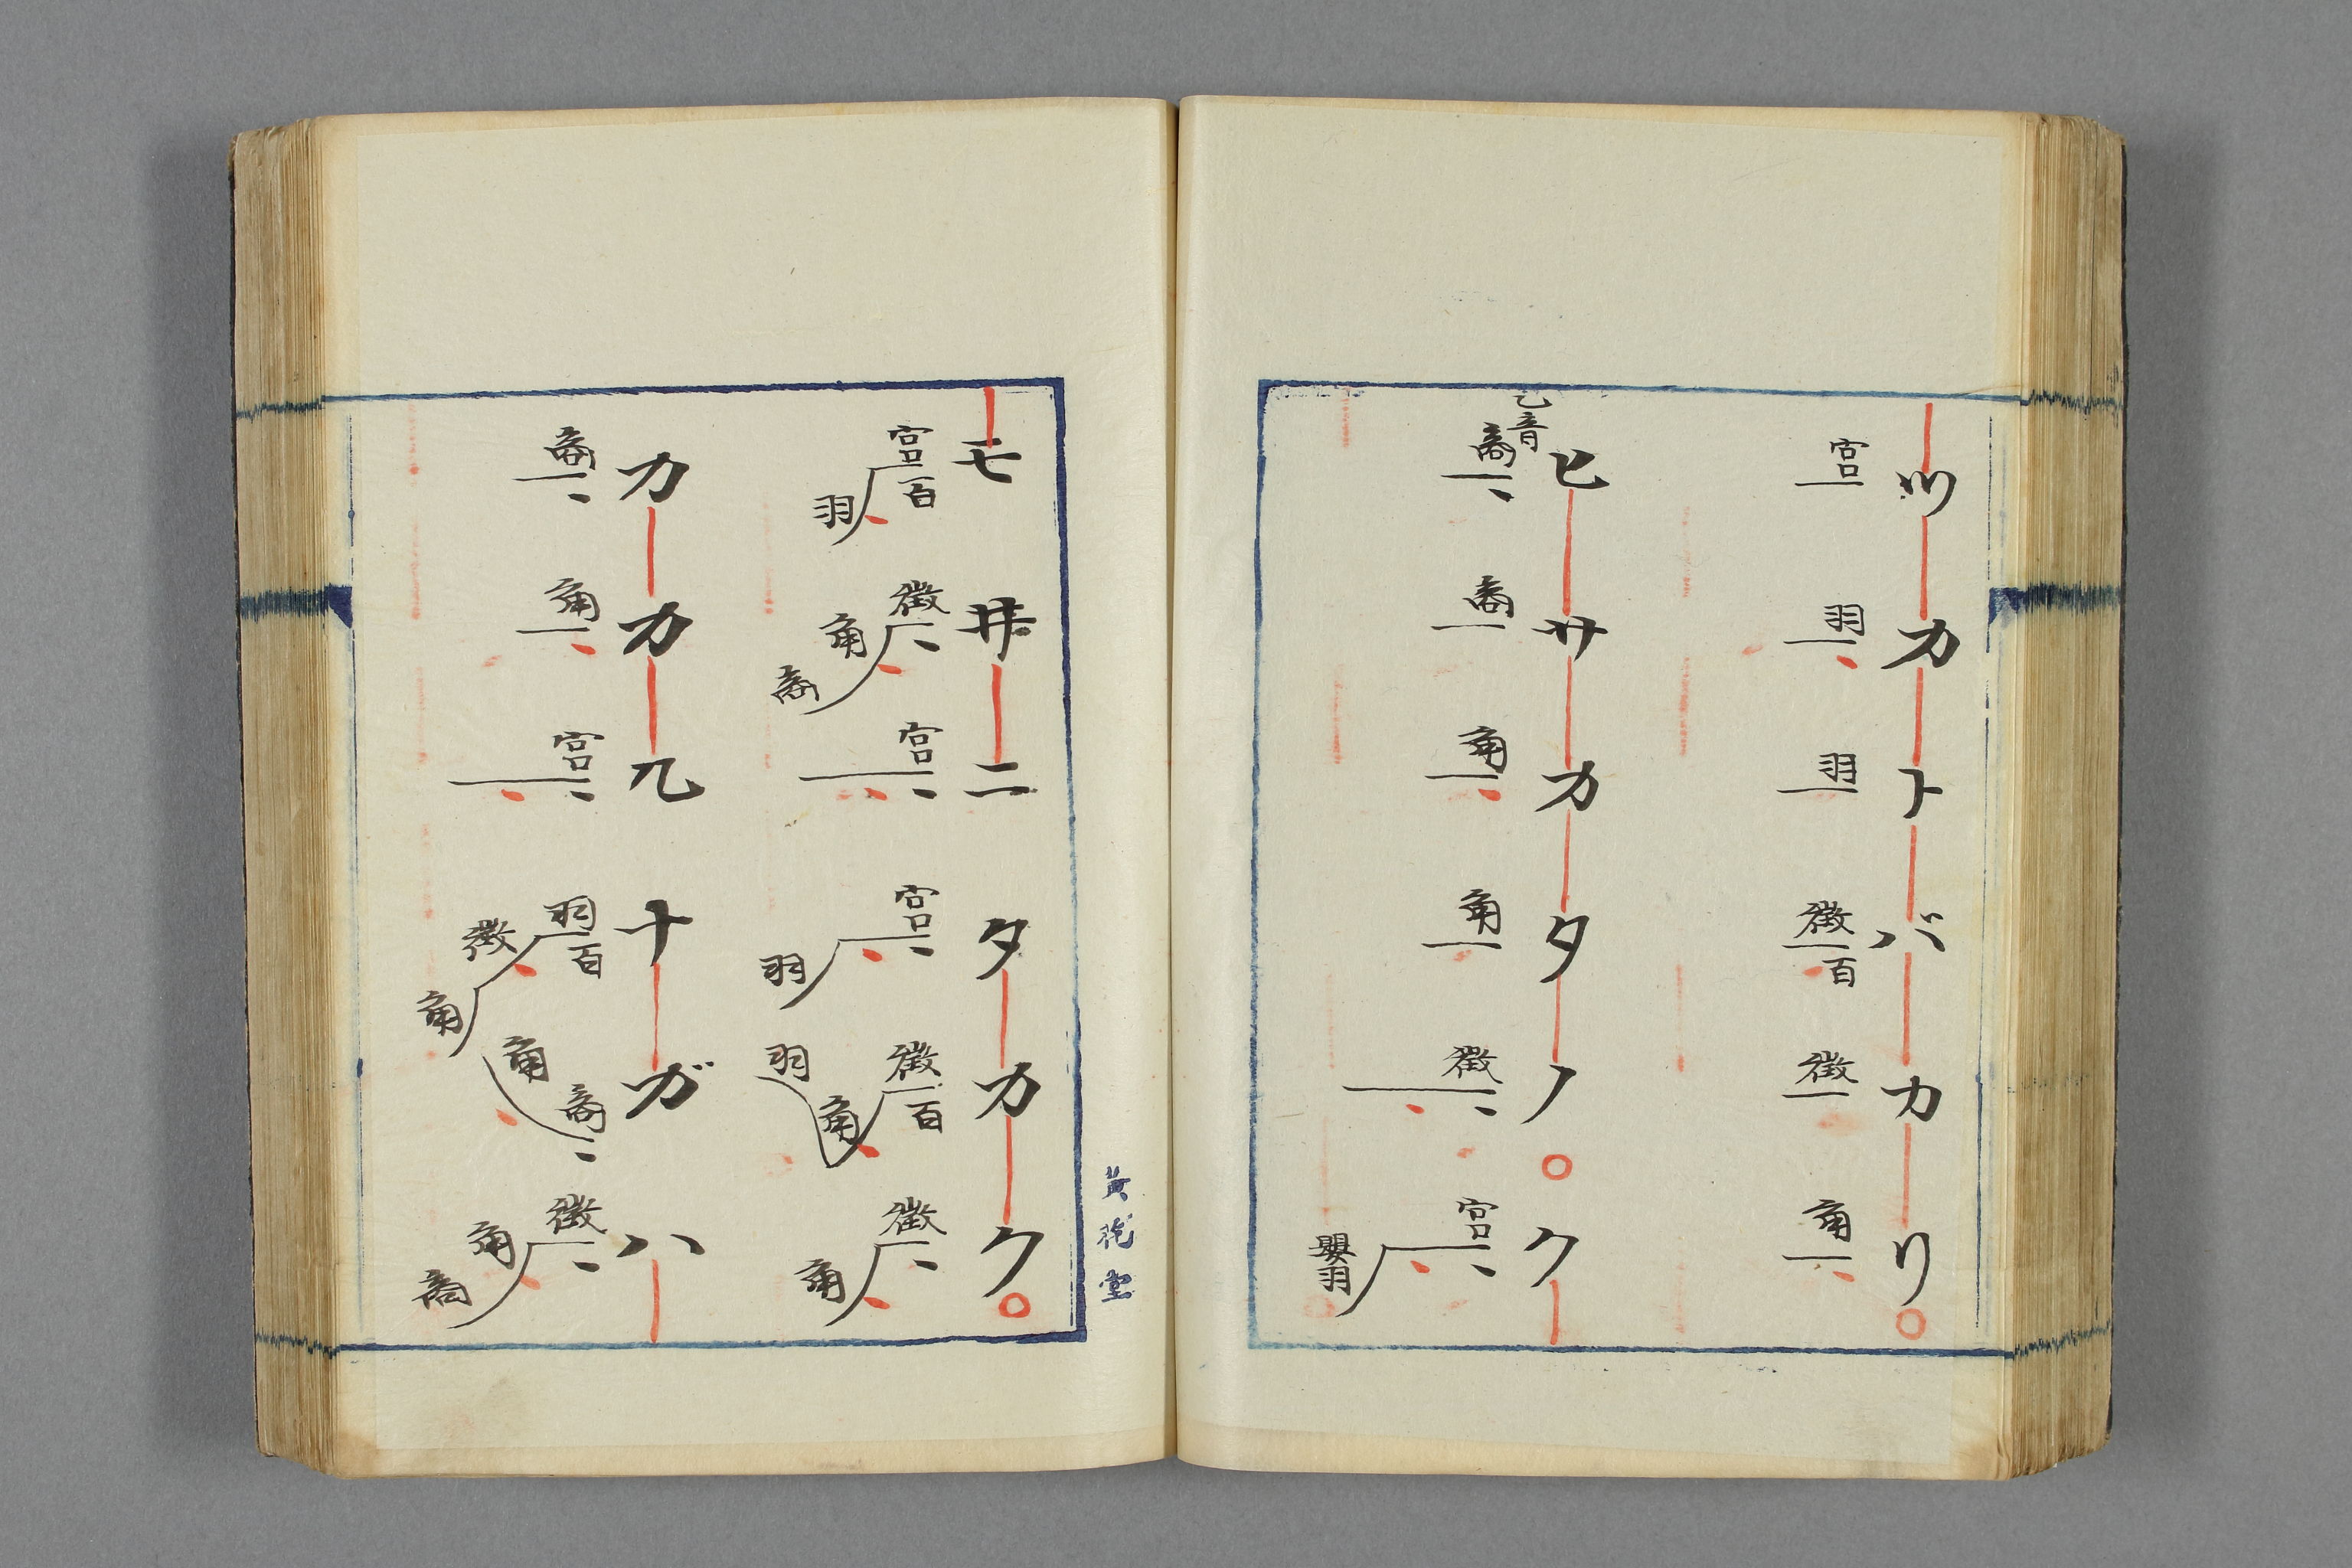 ツカトバカリ
宮
羽
羽
徴
百
徴
角
ヒサカタノク
乙音
商
商
角
角
徴
宮
嬰羽
黄花堂
モ井ニタカク
宮百
羽
徴
角
商
宮
宮
羽
徴百
角
羽
徴
角
カカルナガハ
商
角
宮
羽百
徴
角
角
商
徴
角
商